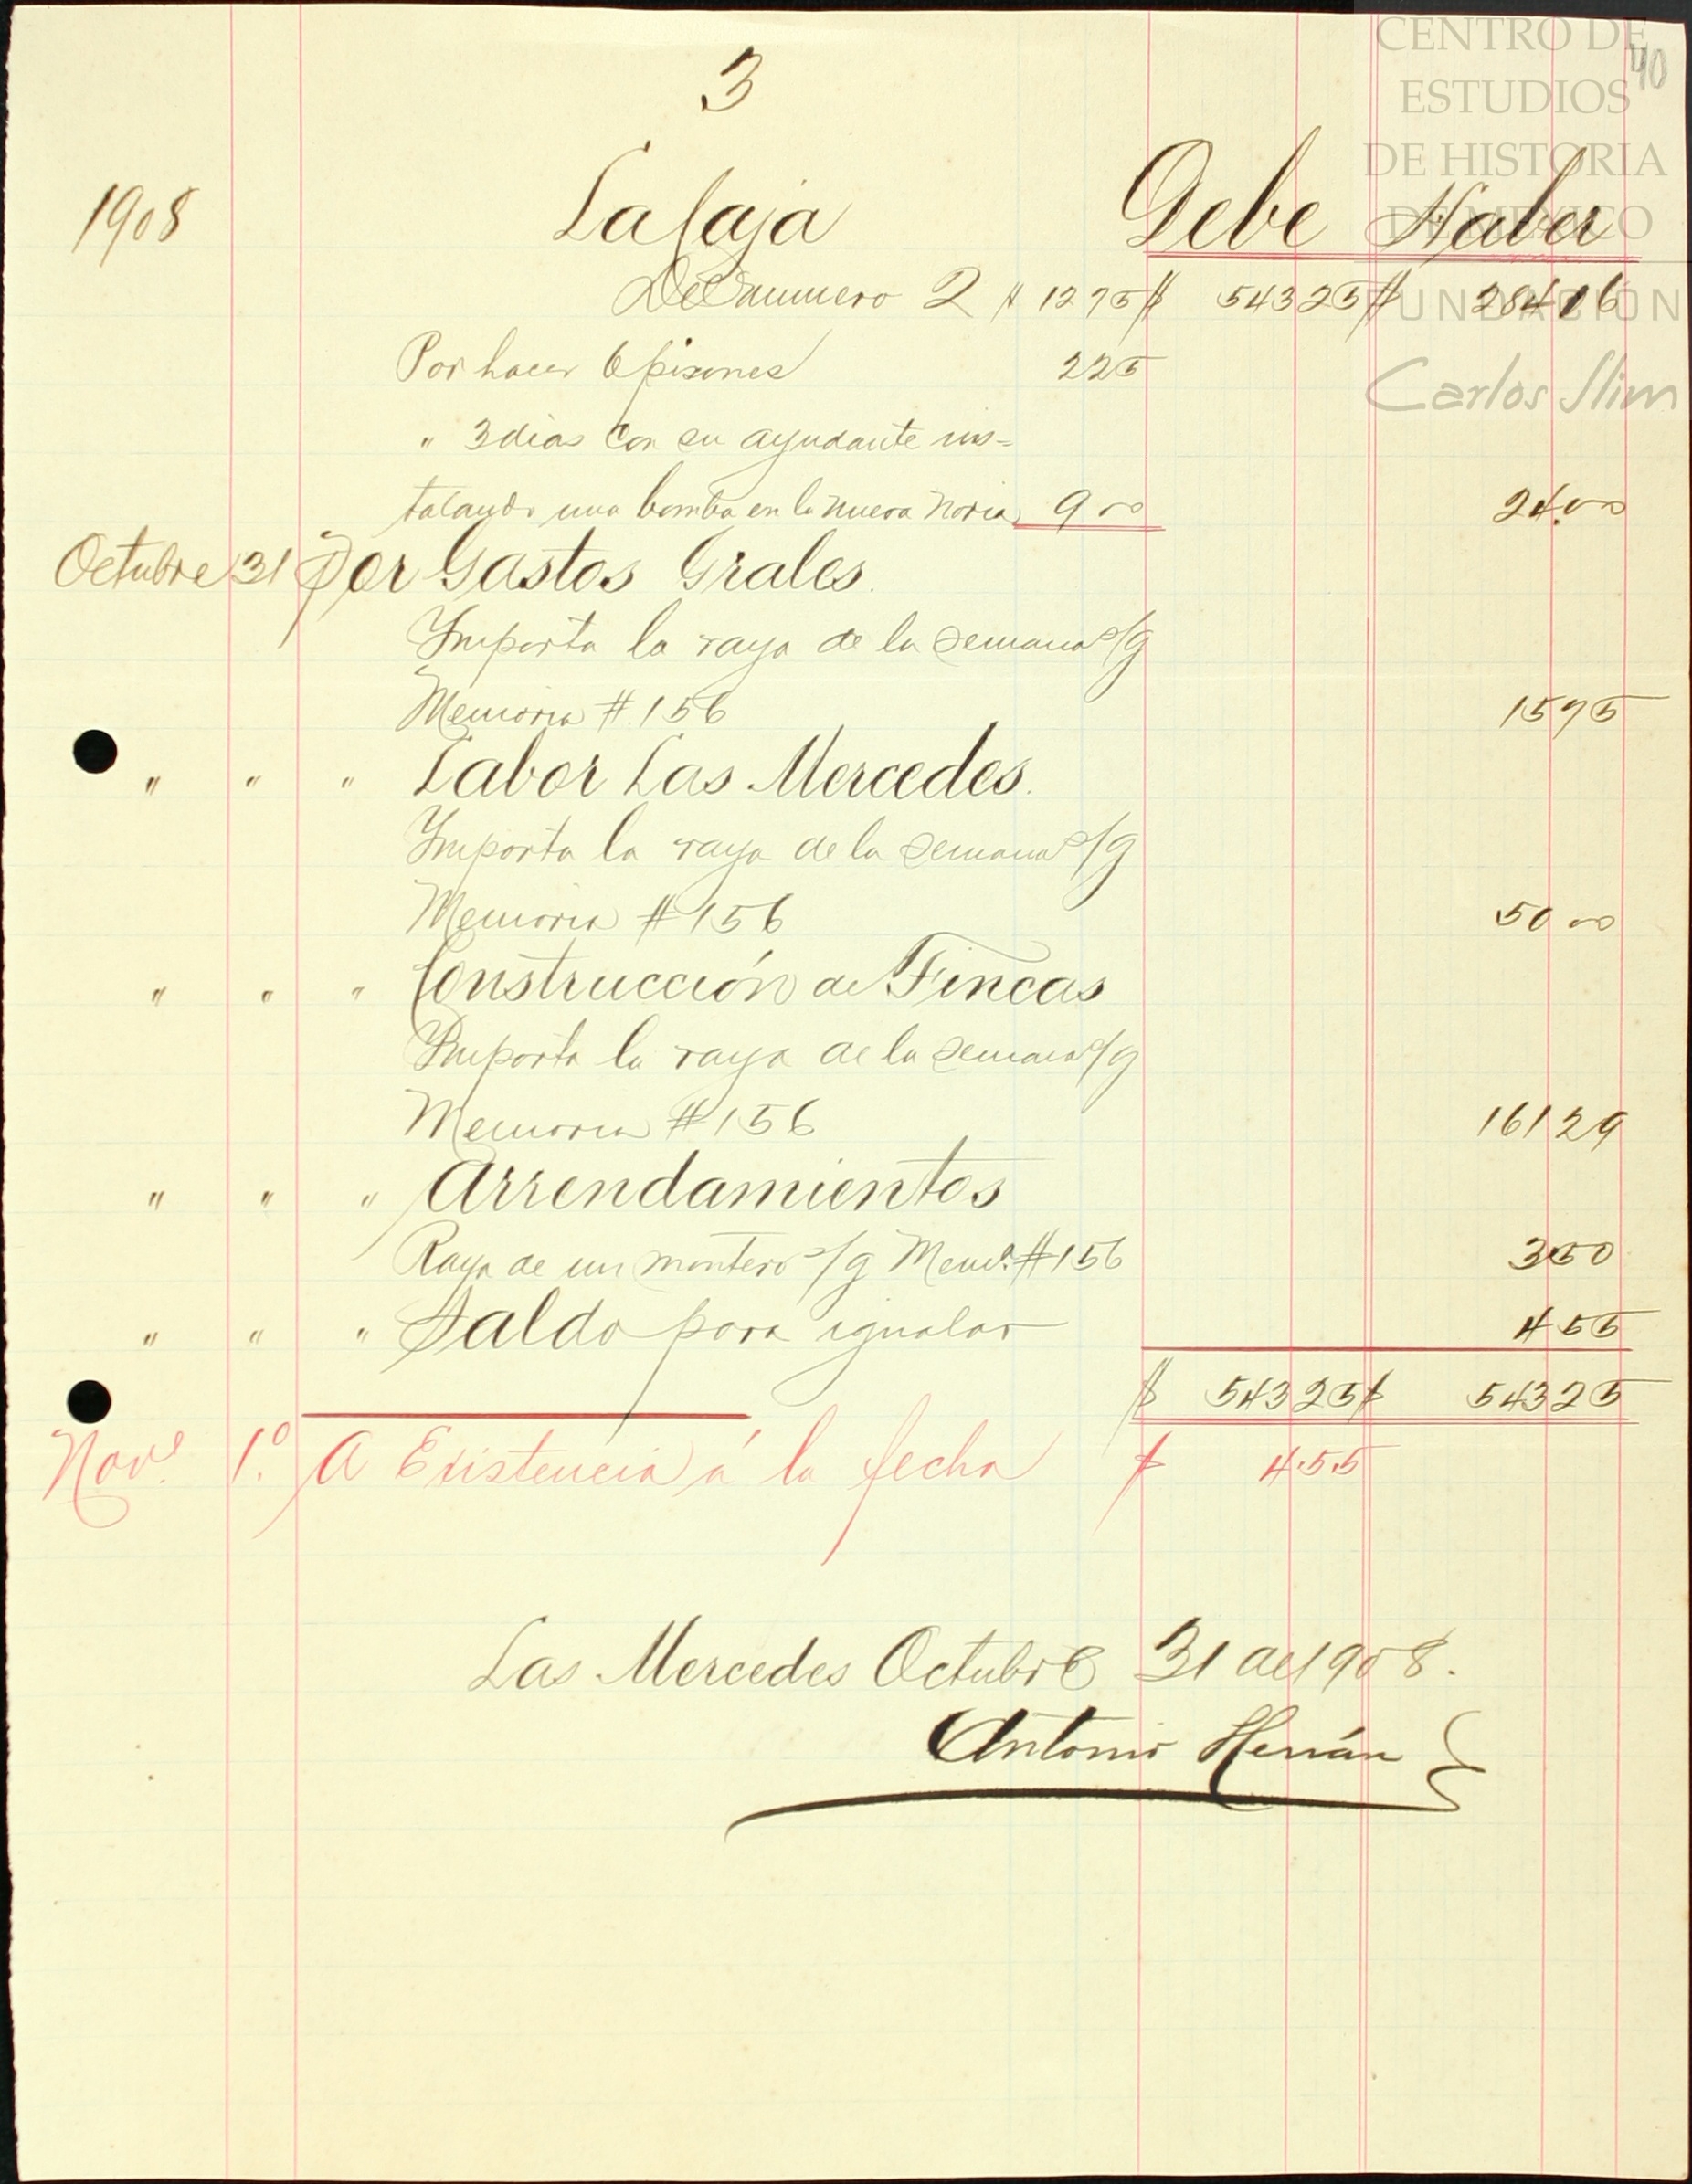 CENTRO DE
ESTUDIOS
DE HISTORIA
DE MEXICO
FUNDACIÓN
Carlos Slim
40
3
1908 La Caja Debe Haber
Del numero 2 $ 12 75 $ 543 25 $ 284 16
Por hacer 6 pisones 2 25
" 3 dias con su ayudante ins=
talando una bomba en la nueva noria 9 00 24.00
Octubre 31 Por Gastos Grales.
Importa la raya de la semana s/g
Memoria # 156 15 75
" " " Labor Las Mercedes.
Importa la raya de la semana s/g
Memoria # 156 50 00
" " " Construcción de Fincas
Importa la raya de la semana s/g
Memoria # 156 161 29
" " " Arrendamientos
Raya de un montero s/g Mema. # 156 3 50
" " " Saldo para igualar 4 55
$ 543 25 $ 543 25
Nove. 1.º A Existencia á la fecha $ 4.55
Las Mercedes Octubre 31 de 1908.
Antonio Herrán